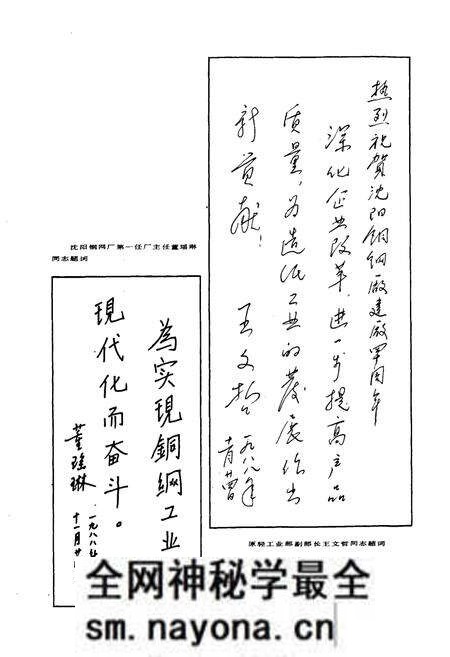 热烈祝賀沈阳铜网厰建厰周年
深化企业改革，进一步提高产品
质量，为造纸工业的發展作出
新贡献！
王文哲 一九八八年
原轻工业部副部长王文哲同志题词
沈阳铜网厂第一任厂主任董瑶琳
同志题词
為实現銅網工业
現代化而奋斗。
董瑶琳 一九八八年
十一月廿
全网神秘学最全
sm.nayona.cn